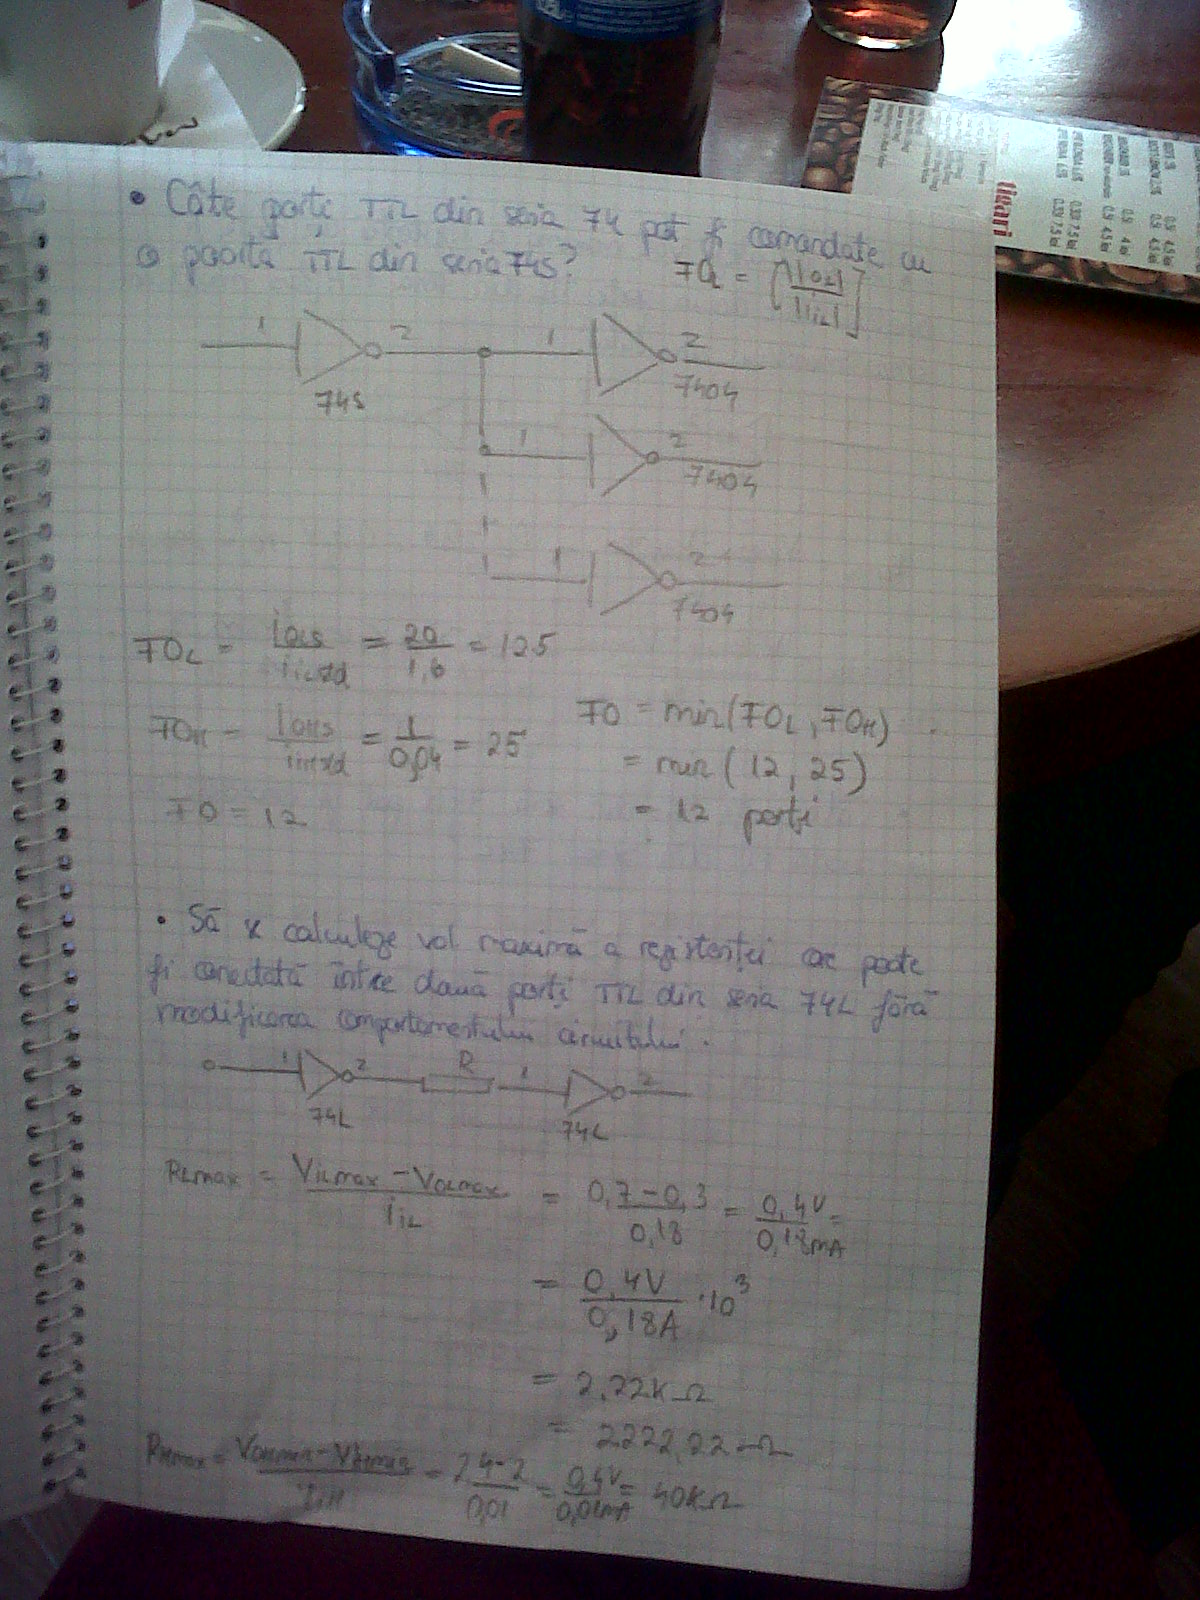 • Câte porți TTL din seria 74 pot fi comandate cu
o poartă TTL din seria 74S?
FOL = [|IOL|/|IIL|]
1 2 1 2
74S 7404
1 2
7404
1 2
7404
FOL = IOLS/IILstd = 20/1,6 = 125
FOH = IOHS/IIHstd = 1/0,04 = 25
FO = min(FOL, FOH)
= min(12, 25)
FO = 12
= 12 porți
• Să se calculeze val maximă a rezistenței ce poate
fi conectată între două porți TTL din seria 74L fără
modificarea comportamentului circuitului.
1 2 R 1 2
74L 74L
RLmax = VILmax - VOLmax/IIL = 0,7-0,3/0,18 = 0,4V/0,18mA =
= 0,4V/0,18A · 10³
= 2,22kΩ
= 2222,22Ω
RHmax = VOHmin - VIHmin/IIH = 2,4-2/0,01 = 0,4V/0,01mA = 40kΩ
ligari